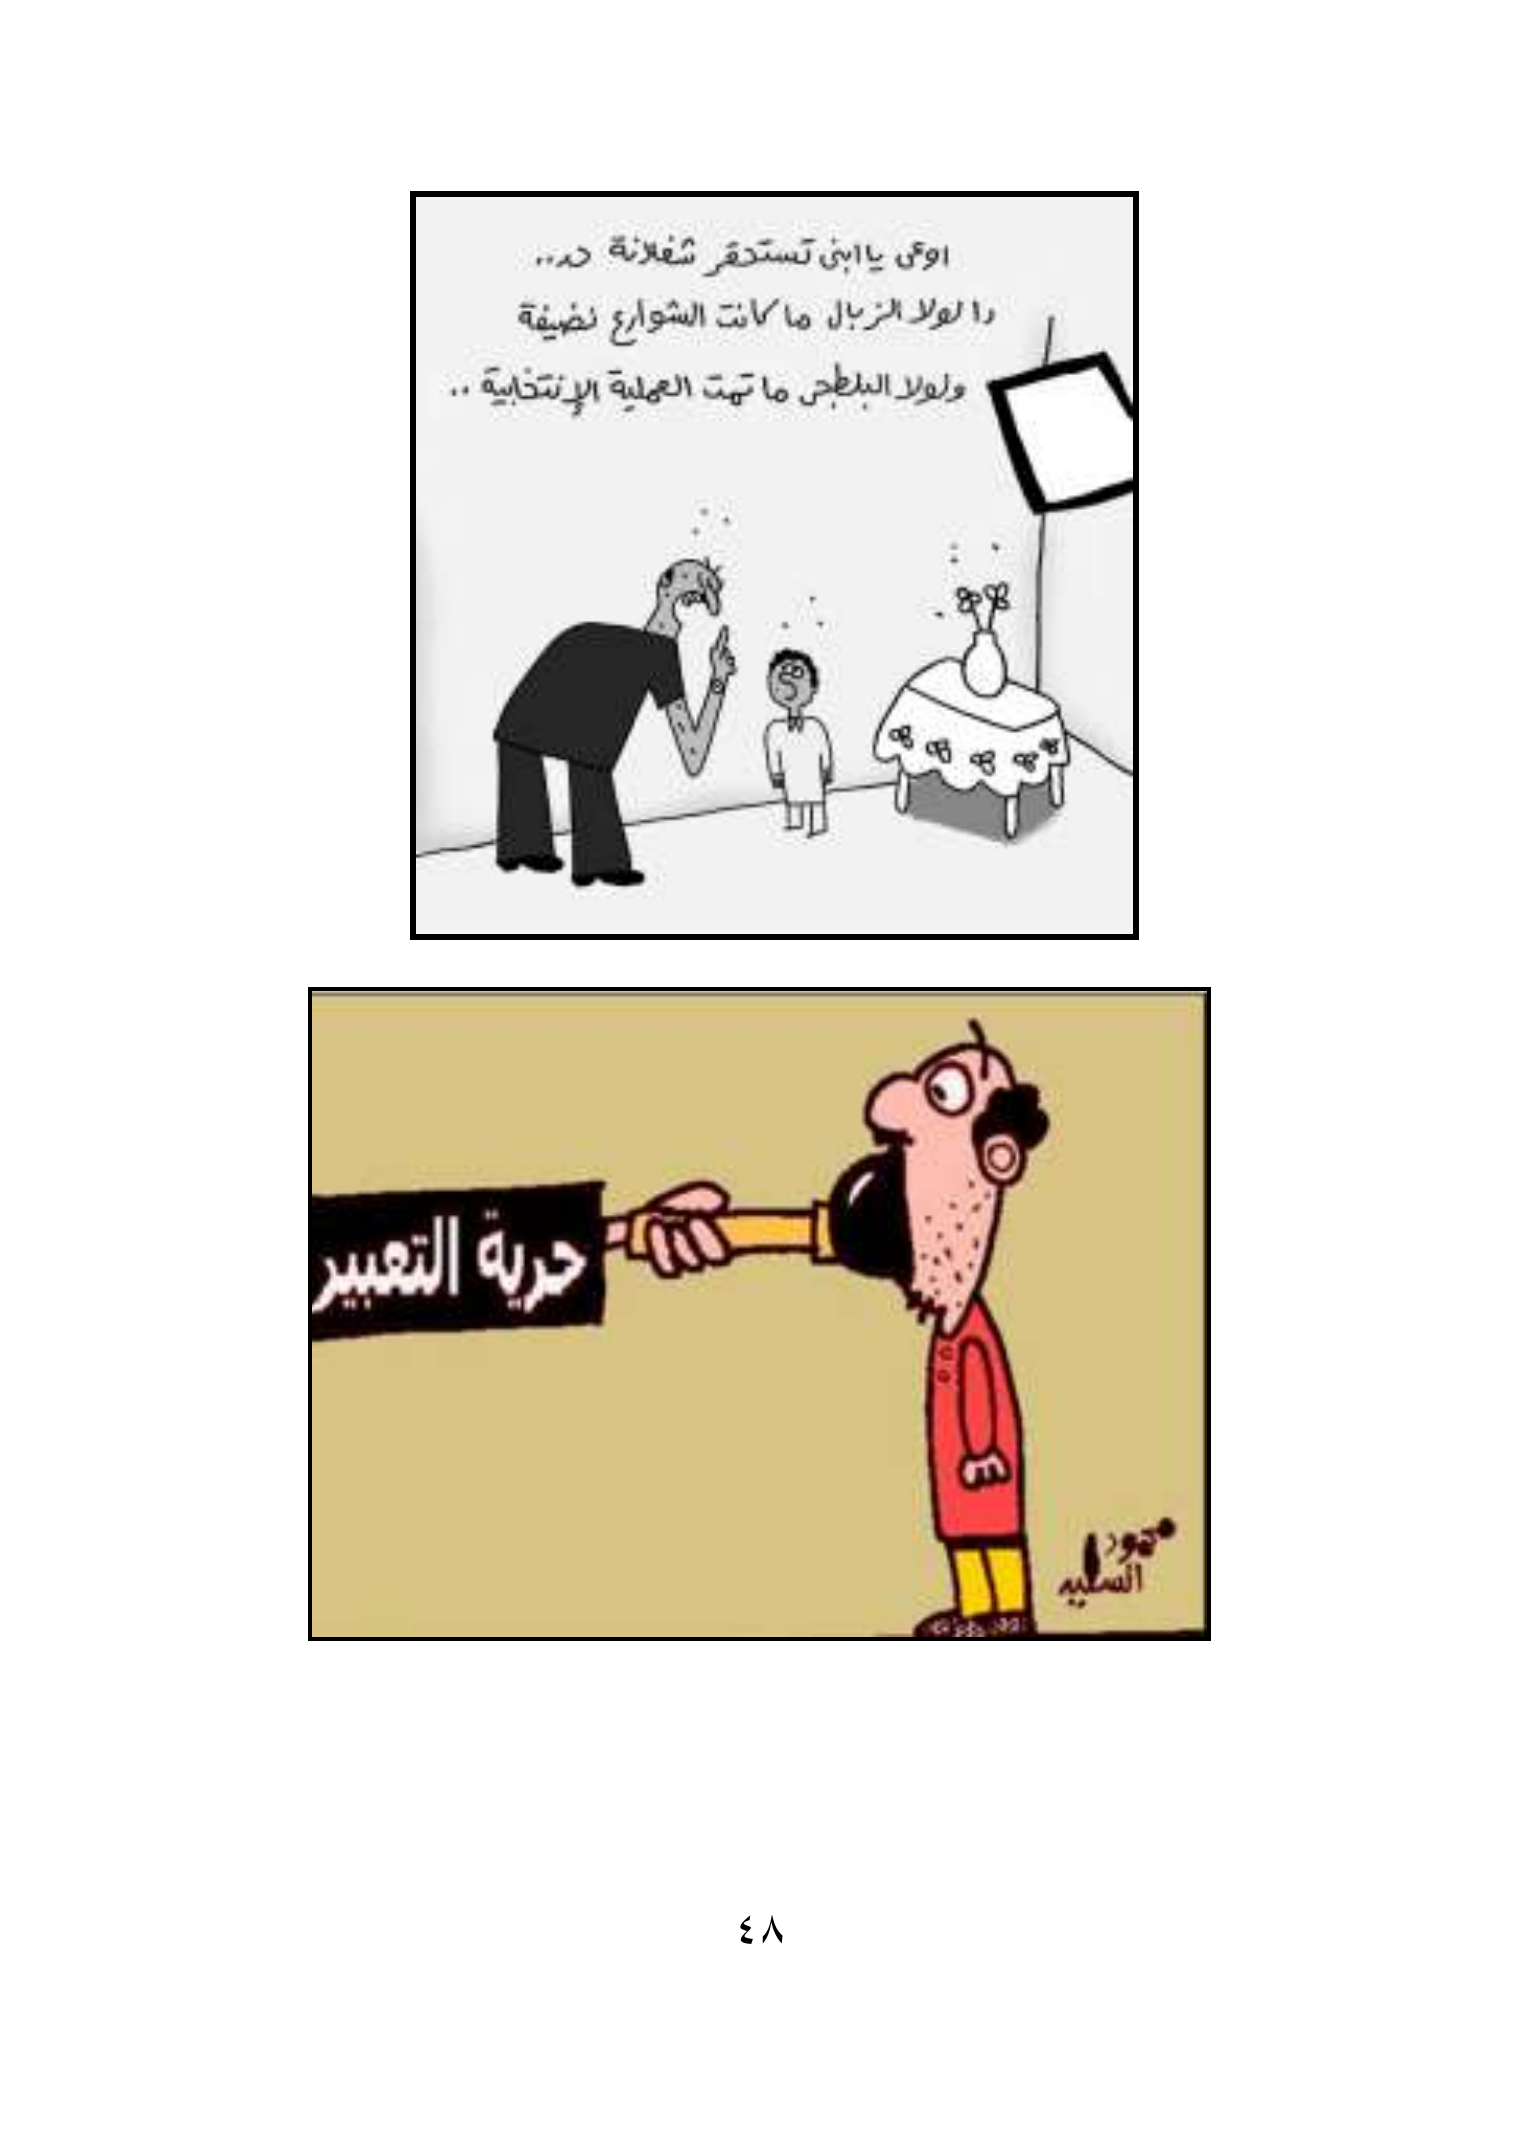 اوعى يا ابنى تستحقر شغلانة حد..
دا لولا الزبال ما كانت الشوارع نضيفة
ولولا البلطجى ما تمت العملية الإنتخابية ..
حرية التعبير
محمود
السيد
٤٨